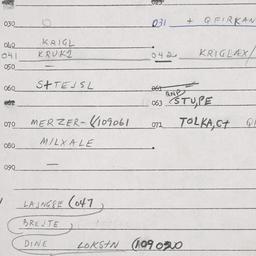 030 031 + QFIRKAN
040 KRIGL
041 KRUKZ 042 KRIGLAX/
050 —
060 S+TEJSL 061
062 063 STUPE
070 MERZER- 109061 072 TOLKA,C+
080 MILXALE
090 —
LAJNGSE (047
BREJTE
DINE LOKSTN (109020